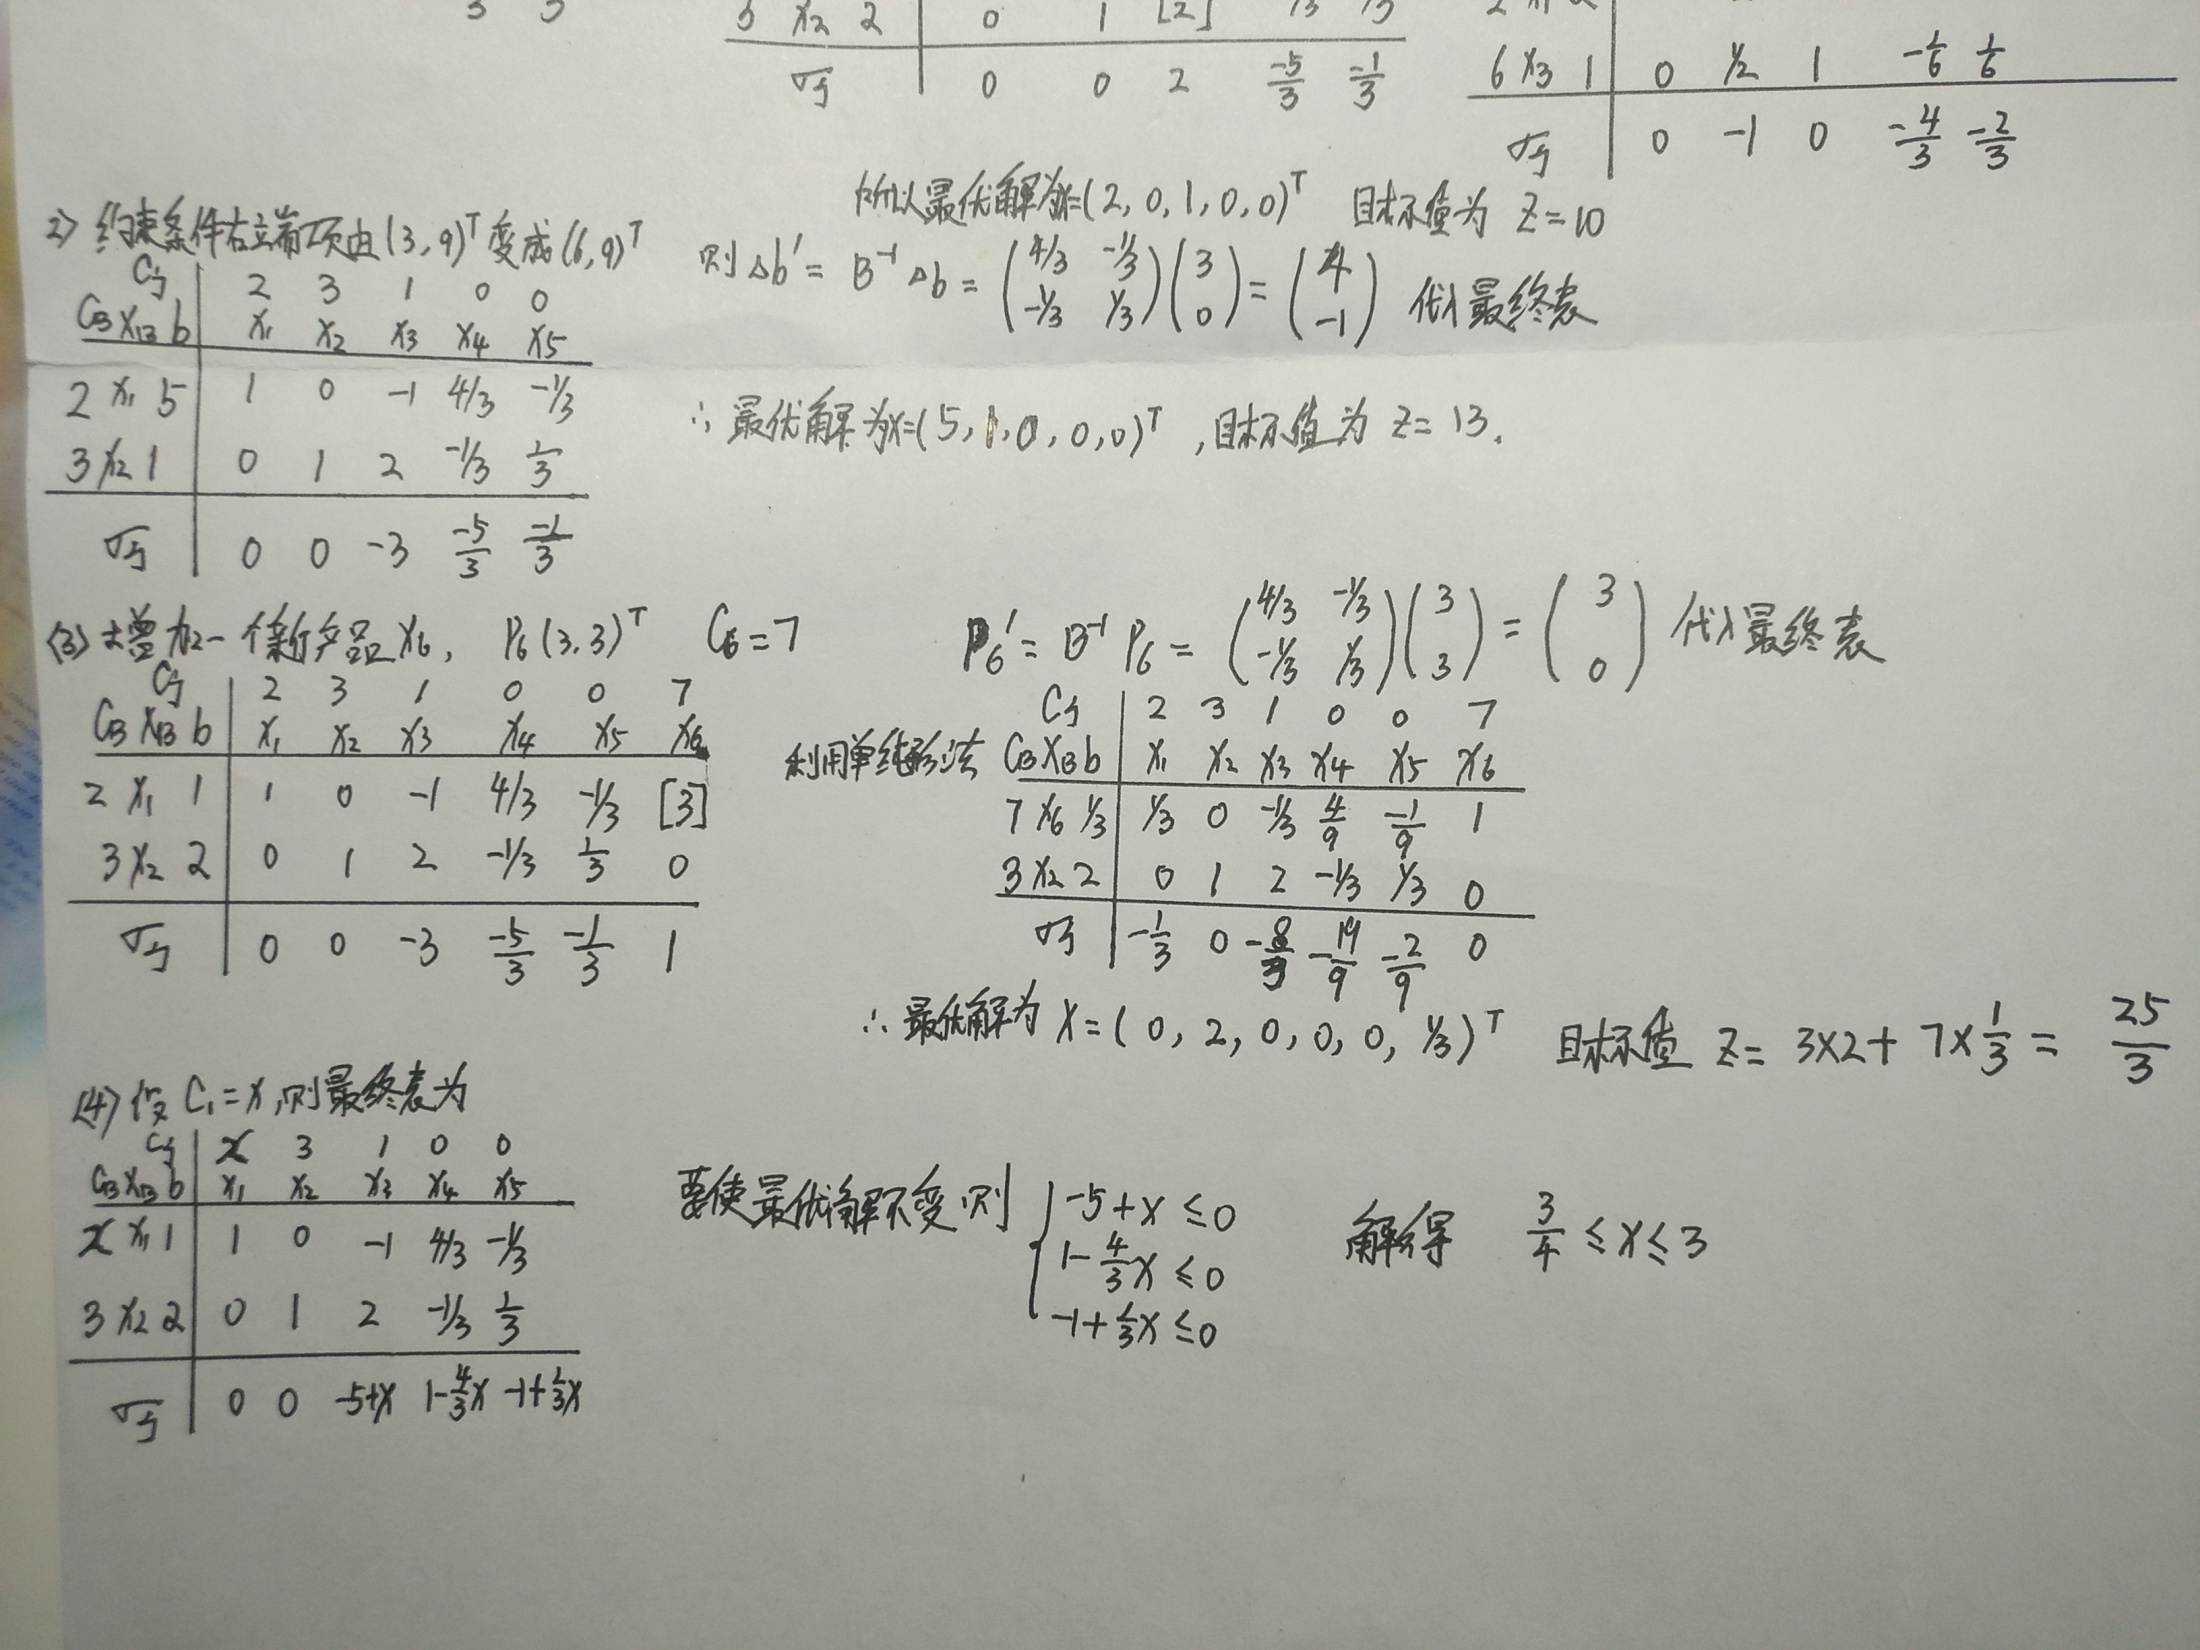 3 3
3 x₂ 2 0 1 [2] -1/3 1/3
σj 0 0 2 -5/3 -1/3
6 x₃ 1 0 1/2 1 -1/6 1/6
σj 0 -1 0 -4/3 -2/3
所以最优解为x=(2,0,1,0,0)ᵀ 目标值为 Z=10
2) 约束条件右端项由(3,9)ᵀ变成(6,9)ᵀ 则 Δb′= B⁻¹Δb = (4/3 -1/3; -1/3 1/3)(3; 0) = (4; -1) 代入最终表
Cj 2 3 1 0 0
CB XB b x₁ x₂ x₃ x₄ x₅
2 x₁ 5 1 0 -1 4/3 -1/3
3 x₂ 1 0 1 2 -1/3 1/3
σj 0 0 -3 -5/3 -1/3
∴ 最优解为x=(5,1,0,0,0)ᵀ ,目标值为 Z=13.
(3) 增加一个新产品x₆, P₆(3,3)ᵀ C₆=7 P₆′= B⁻¹P₆ = (4/3 -1/3; -1/3 1/3)(3; 3) = (3; 0) 代入最终表
Cj 2 3 1 0 0 7
CB XB b x₁ x₂ x₃ x₄ x₅ x₆
2 x₁ 1 1 0 -1 4/3 -1/3 [3]
3 x₂ 2 0 1 2 -1/3 1/3 0
σj 0 0 -3 -5/3 -1/3 1
利用单纯形法
Cj 2 3 1 0 0 7
CB XB b x₁ x₂ x₃ x₄ x₅ x₆
7 x₆ 1/3 1/3 0 -1/3 4/9 -1/9 1
3 x₂ 2 0 1 2 -1/3 1/3 0
σj -1/3 0 -8/3 -19/9 -2/9 0
∴ 最优解为 X=(0,2,0,0,0,1/3)ᵀ 目标值 Z= 3×2+7×1/3 = 25/3
(4) 设 C₁=x,则最终表为
Cj x 3 1 0 0
CB XB b x₁ x₂ x₃ x₄ x₅
x x₁ 1 1 0 -1 4/3 -1/3
3 x₂ 2 0 1 2 -1/3 1/3
σj 0 0 -5+x 1-4/3x -1+1/3x
要使最优解不变,则
-5+x ≤0
1-4/3x ≤0
-1+1/3x ≤0
解得 3/4 ≤x≤3